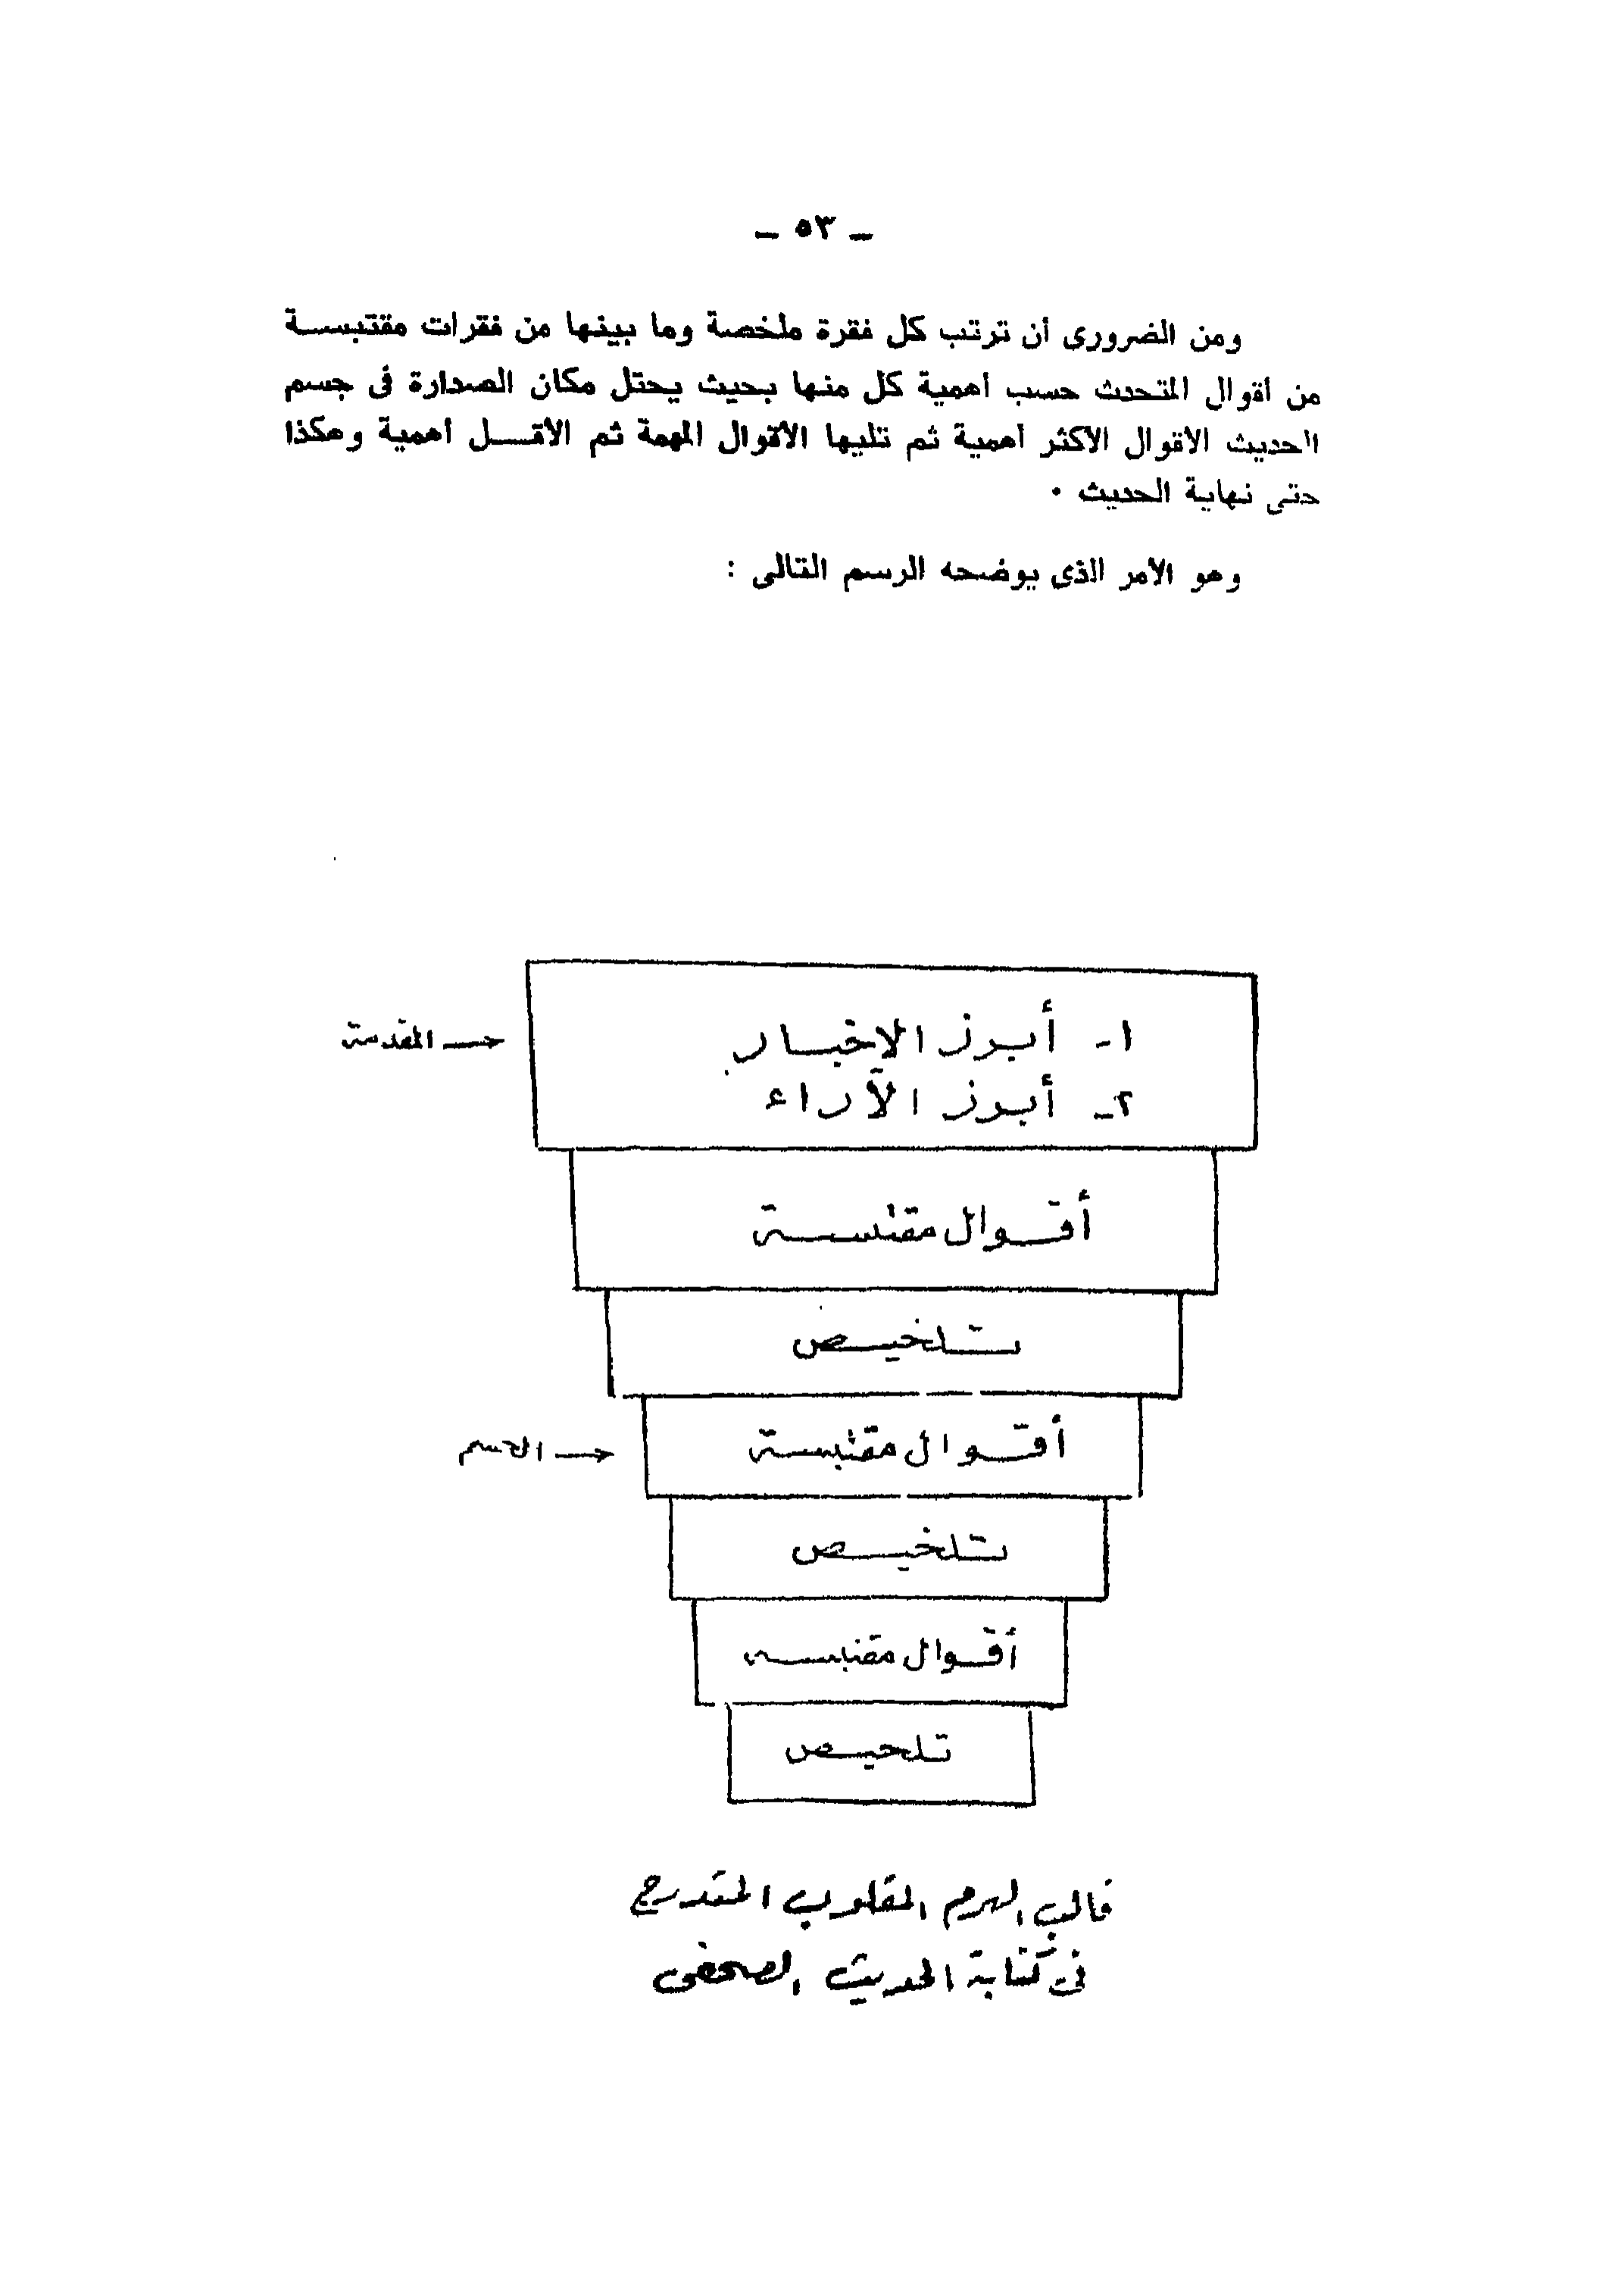 – ٥٣ –
ومن الضرورى أن ترتب كل فقرة ملخصة وما بينها من فقرات مقتبسة
من أقوال المتحدث حسب أهمية كل منها بحيث يحتل مكان الصدارة فى جسم
الحديث الأقوال الأكثر أهمية ثم تليها الأقوال المهمة ثم الأقل أهمية وهكذا
حتى نهاية الحديث .
وهو الأمر الذى يوضحه الرسم التالى :
١- أبرز الاخبار
المقدمة
٢- أبرز الآراء
أقوال مقتبسة
تلخيص
أقوال مقتبسة
الجسم
تلخيص
أقوال مقتبسة
تلخيص
قالب الهرم المقلوب المتدرج
فى كتابة الحديث الصحفى